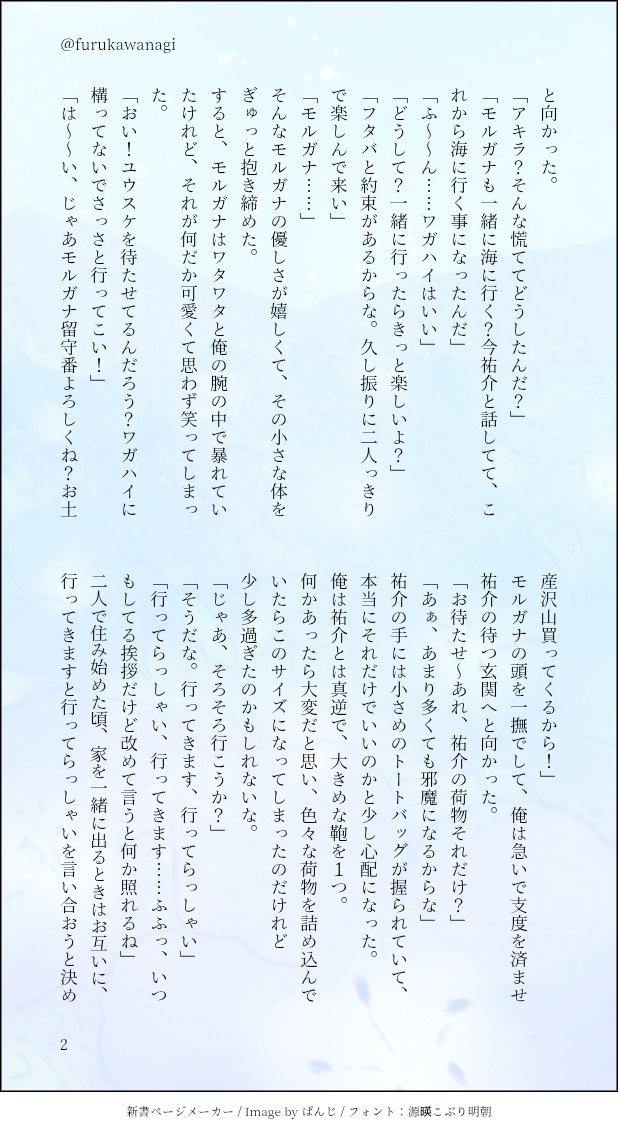 @furukawanagi
と向かった。
「アキラ？そんな慌ててどうしたんだ？」
「モルガナも一緒に海に行く？今祐介と話してて、こ
れから海に行く事になったんだ」
「ふ〜〜ん……ワガハイはいい」
「どうして？一緒に行ったらきっと楽しいよ？」
「フタバと約束があるからな。久し振りに二人っきり
で楽しんで来い」
「モルガナ……」
そんなモルガナの優しさが嬉しくて、その小さな体を
ぎゅっと抱き締めた。
すると、モルガナはワタワタと俺の腕の中で暴れてい
たけれど、それが何だか可愛くて思わず笑ってしまっ
た。
「おい！ユウスケを待たせてるんだろう？ワガハイに
構ってないでさっさと行ってこい！」
「は〜〜い、じゃあモルガナ留守番よろしくね？お土
産沢山買ってくるから！」
モルガナの頭を一撫でして、俺は急いで支度を済ませ
祐介の待つ玄関へと向かった。
「お待たせ〜あれ、祐介の荷物それだけ？」
「あぁ、あまり多くても邪魔になるからな」
祐介の手には小さめのトートバッグが握られていて、
本当にそれだけでいいのかと少し心配になった。
俺は祐介とは真逆で、大きめな鞄を１つ。
何かあったら大変だと思い、色々な荷物を詰め込んで
いたらこのサイズになってしまったのだけれど
少し多過ぎたのかもしれないな。
「じゃあ、そろそろ行こうか？」
「そうだな。行ってきます、行ってらっしゃい」
「行ってらっしゃい、行ってきます……ふふっ、いつ
もしてる挨拶だけど改めて言うと何か照れるね」
二人で住み始めた頃、家を一緒に出るときはお互いに、
行ってきますと行ってらっしゃいを言い合おうと決め
2
新書ページメーカー / Image by ぱんじ / フォント：源暎こぶり明朝